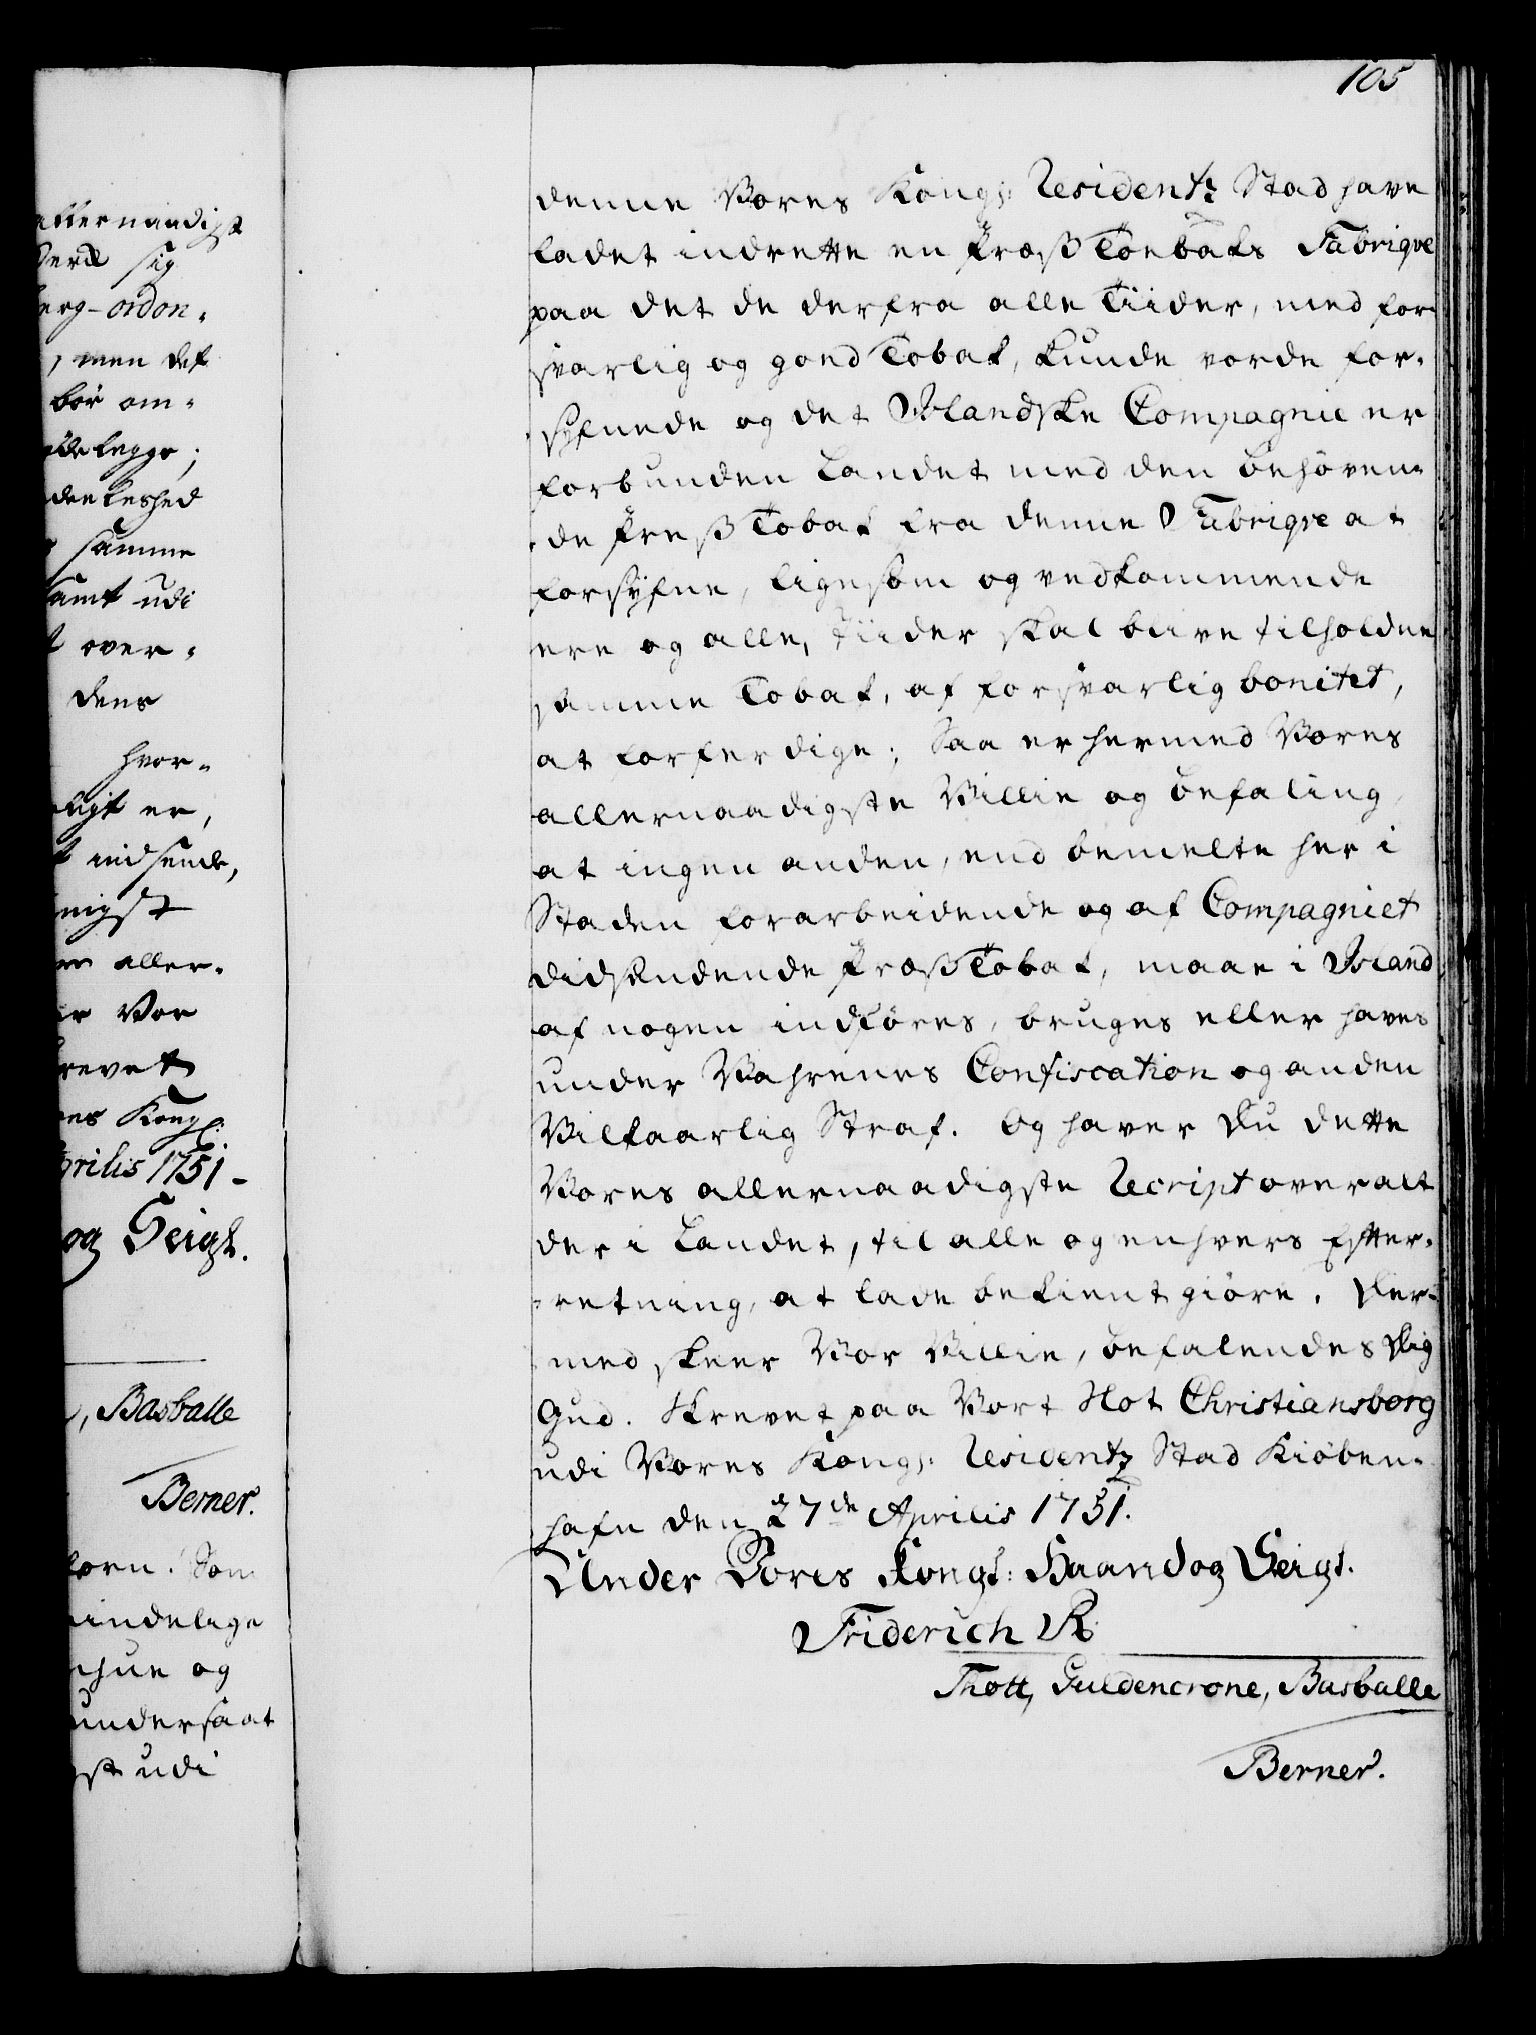 105
allernaadigst
sig
berg-ordon-
, men des
bör om-
samme
samt udi
over-
dens
hvor-
er,
indsende,
aller-
Vor
Skrevet
Kongl:
Aprilis 1751-
og Seigl.
, Basballe
Berner.
Som
undersaat
udi
denne Vores Kongl: Residentz Stad have
ladet indrette en Press Toebaks Fabriqve
paa det de derfra alle Tiider, med for-
svarlig og goed Tobak, kunde vorde for-
syfnede og det Islandske Compagnie er
forbunden Landet med den behöven-
de Press Tobak fra denne Fabriqve at
forsyfne, ligesom og vedkommende
ere og alle Tiider skal blive tilholdne
samme Tobak, af forsvarlig bonitet,
at forferdige; Saa er hermed Vores
allernaadigste Villie og befaling,
at ingen anden, end bemelte her i
Staden forarbeidende og af Compagniet
didsendende Press Tobak, maae i Island
af nogen indföres, bruges eller haves
under Vahrenes Confiscation og anden
Vilkaarlig Straf. Og haver Du dette
Vores allernaadigste Recript overalt
der i Landet, til alle og enhvers Efter-
-retning, at lade bekient giöre. Der-
med skeer Vor Villie, befalendes Dig
Gud. Skrevet paa Vort Slot Christiansborg
udi Vores Kongl: Residentz Stad Kiöben-
hafn den 27de Aprilis 1751.
Under Vores Kongl: Haand og Seigl.
Friderich R.
Thott, Guldencrone, Basballe
Berner.